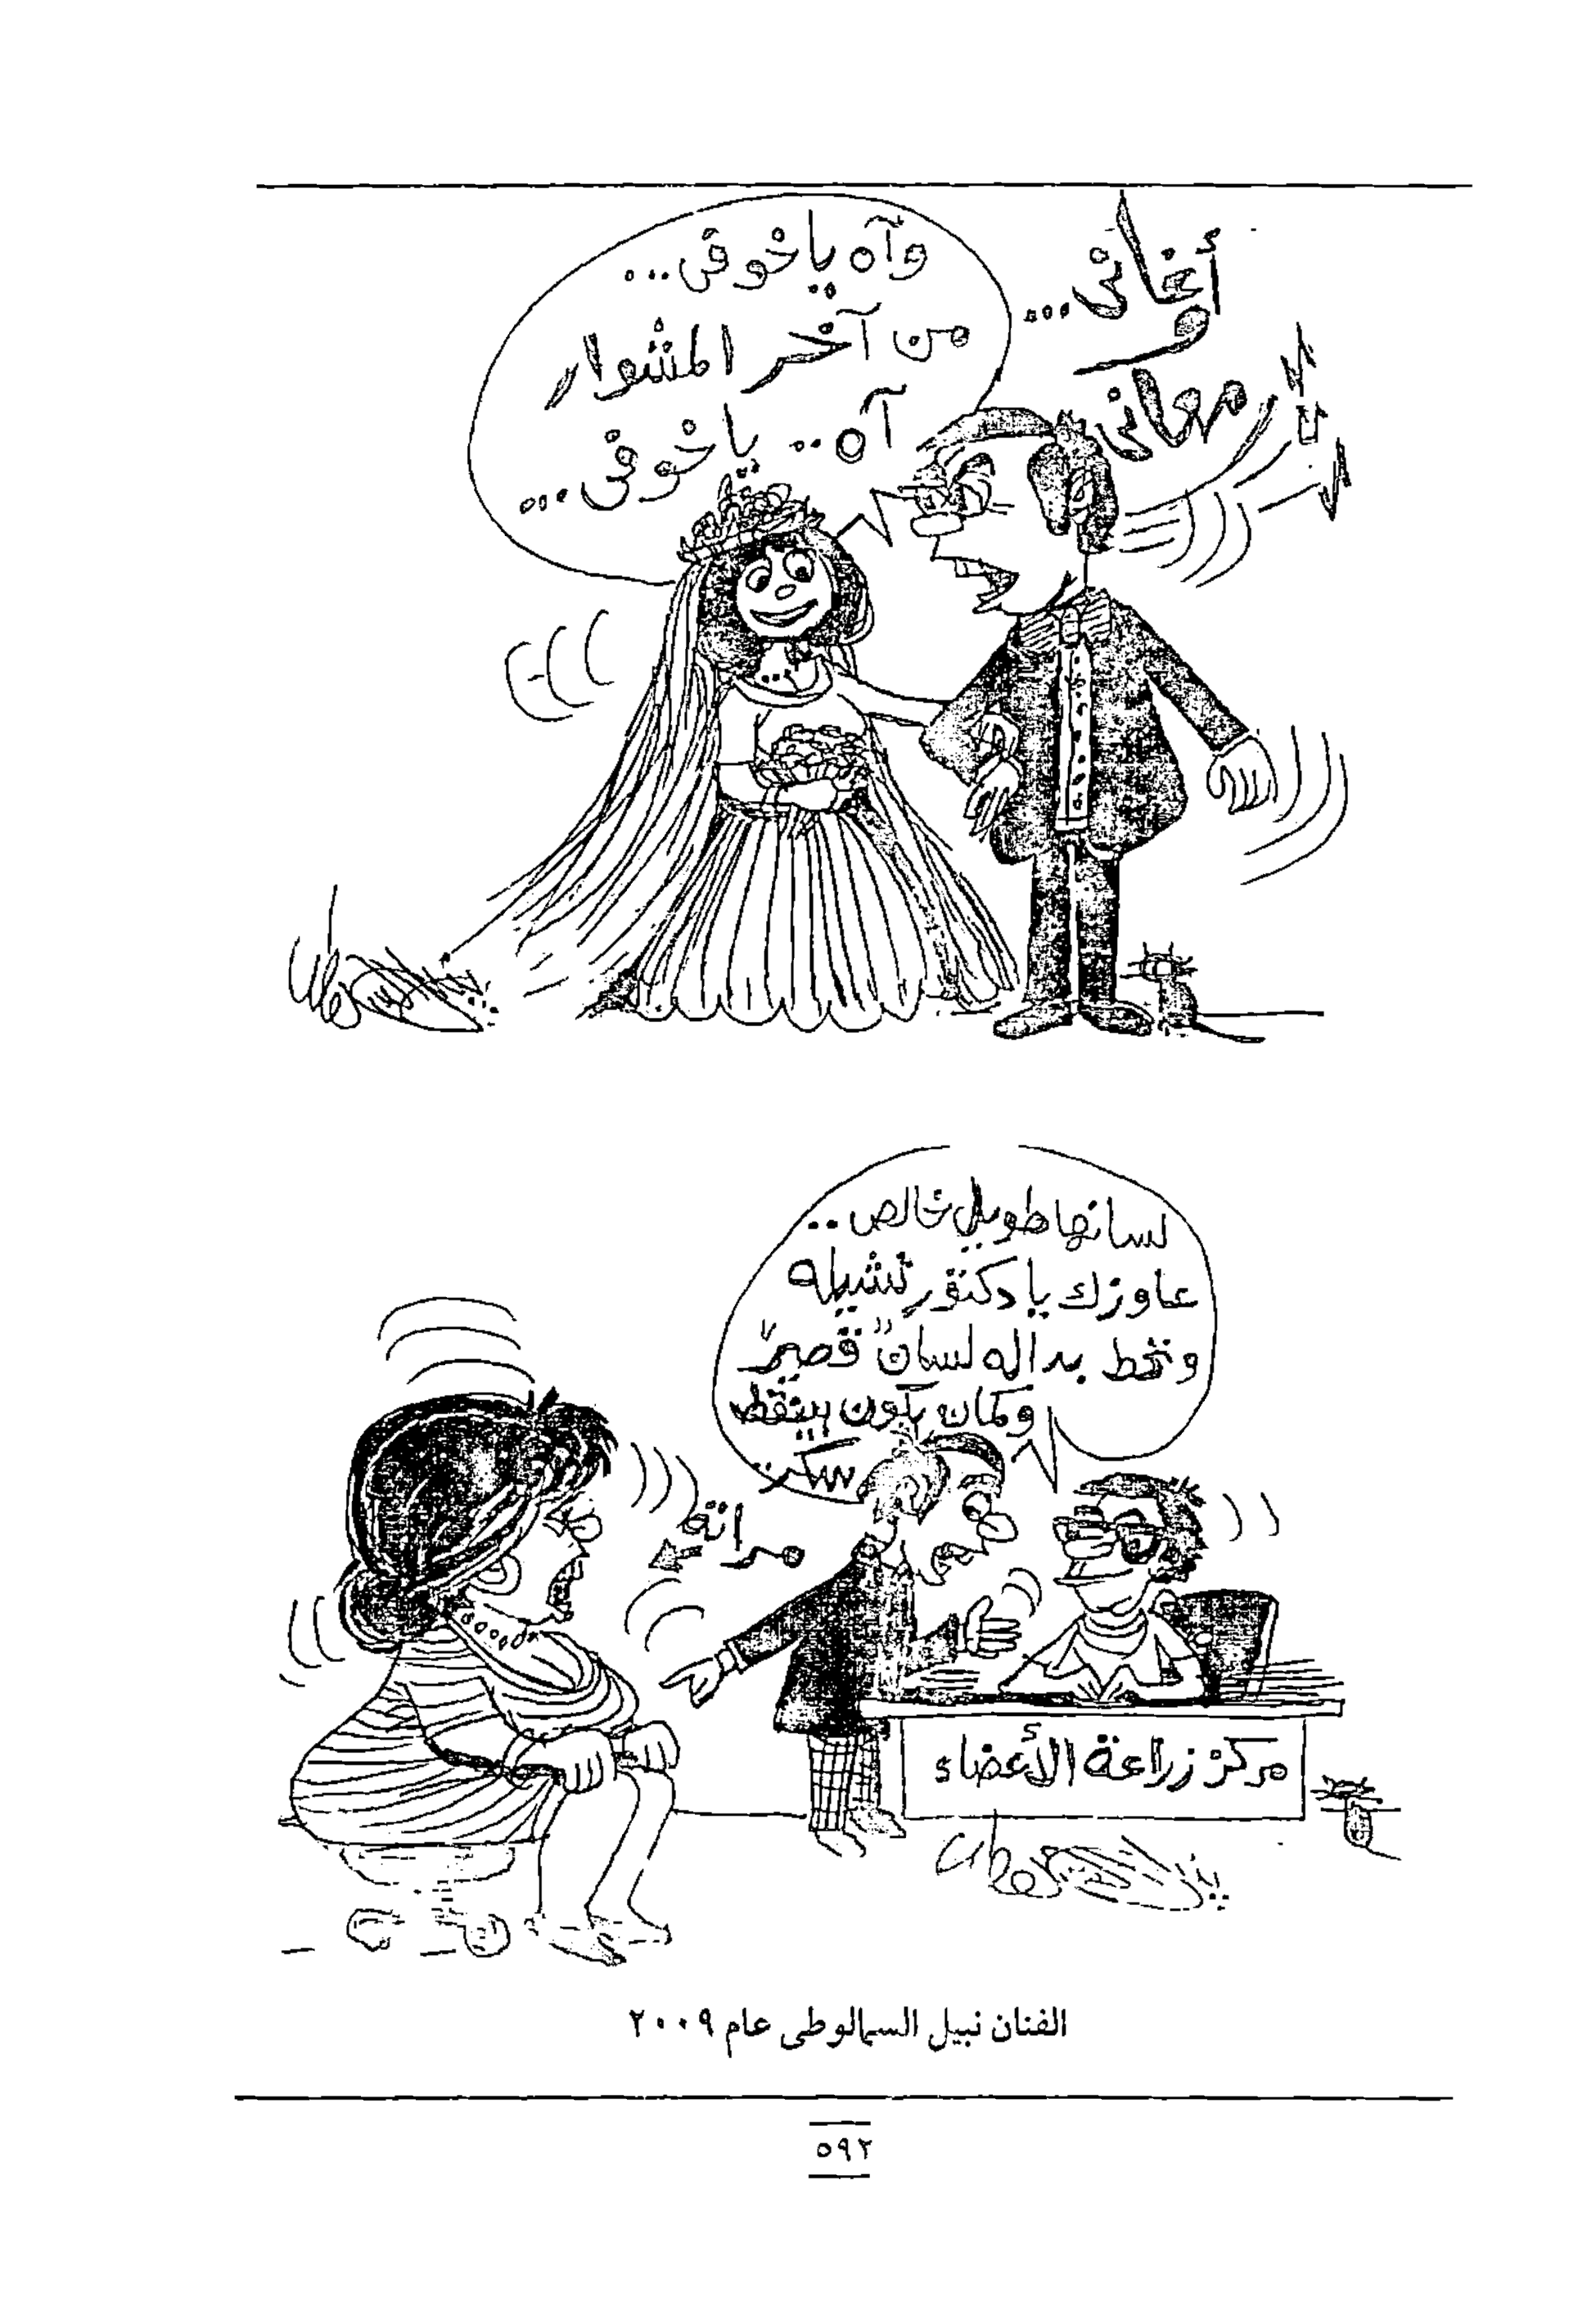 أغانى...
و
معانى
وآه ياخوفى...
من آخر المشوار
آه.. ياخوفى...
لسانها طويل خالص..
عاوزك يا دكتور تشيله
وتحط بداله لسان "قصير"
وكمان يكون بينقط
سكر..
مراته
مركز زراعة الأعضاء
الفنان نبيل السمالوطى عام ٢٠٠٩
٥٩٢